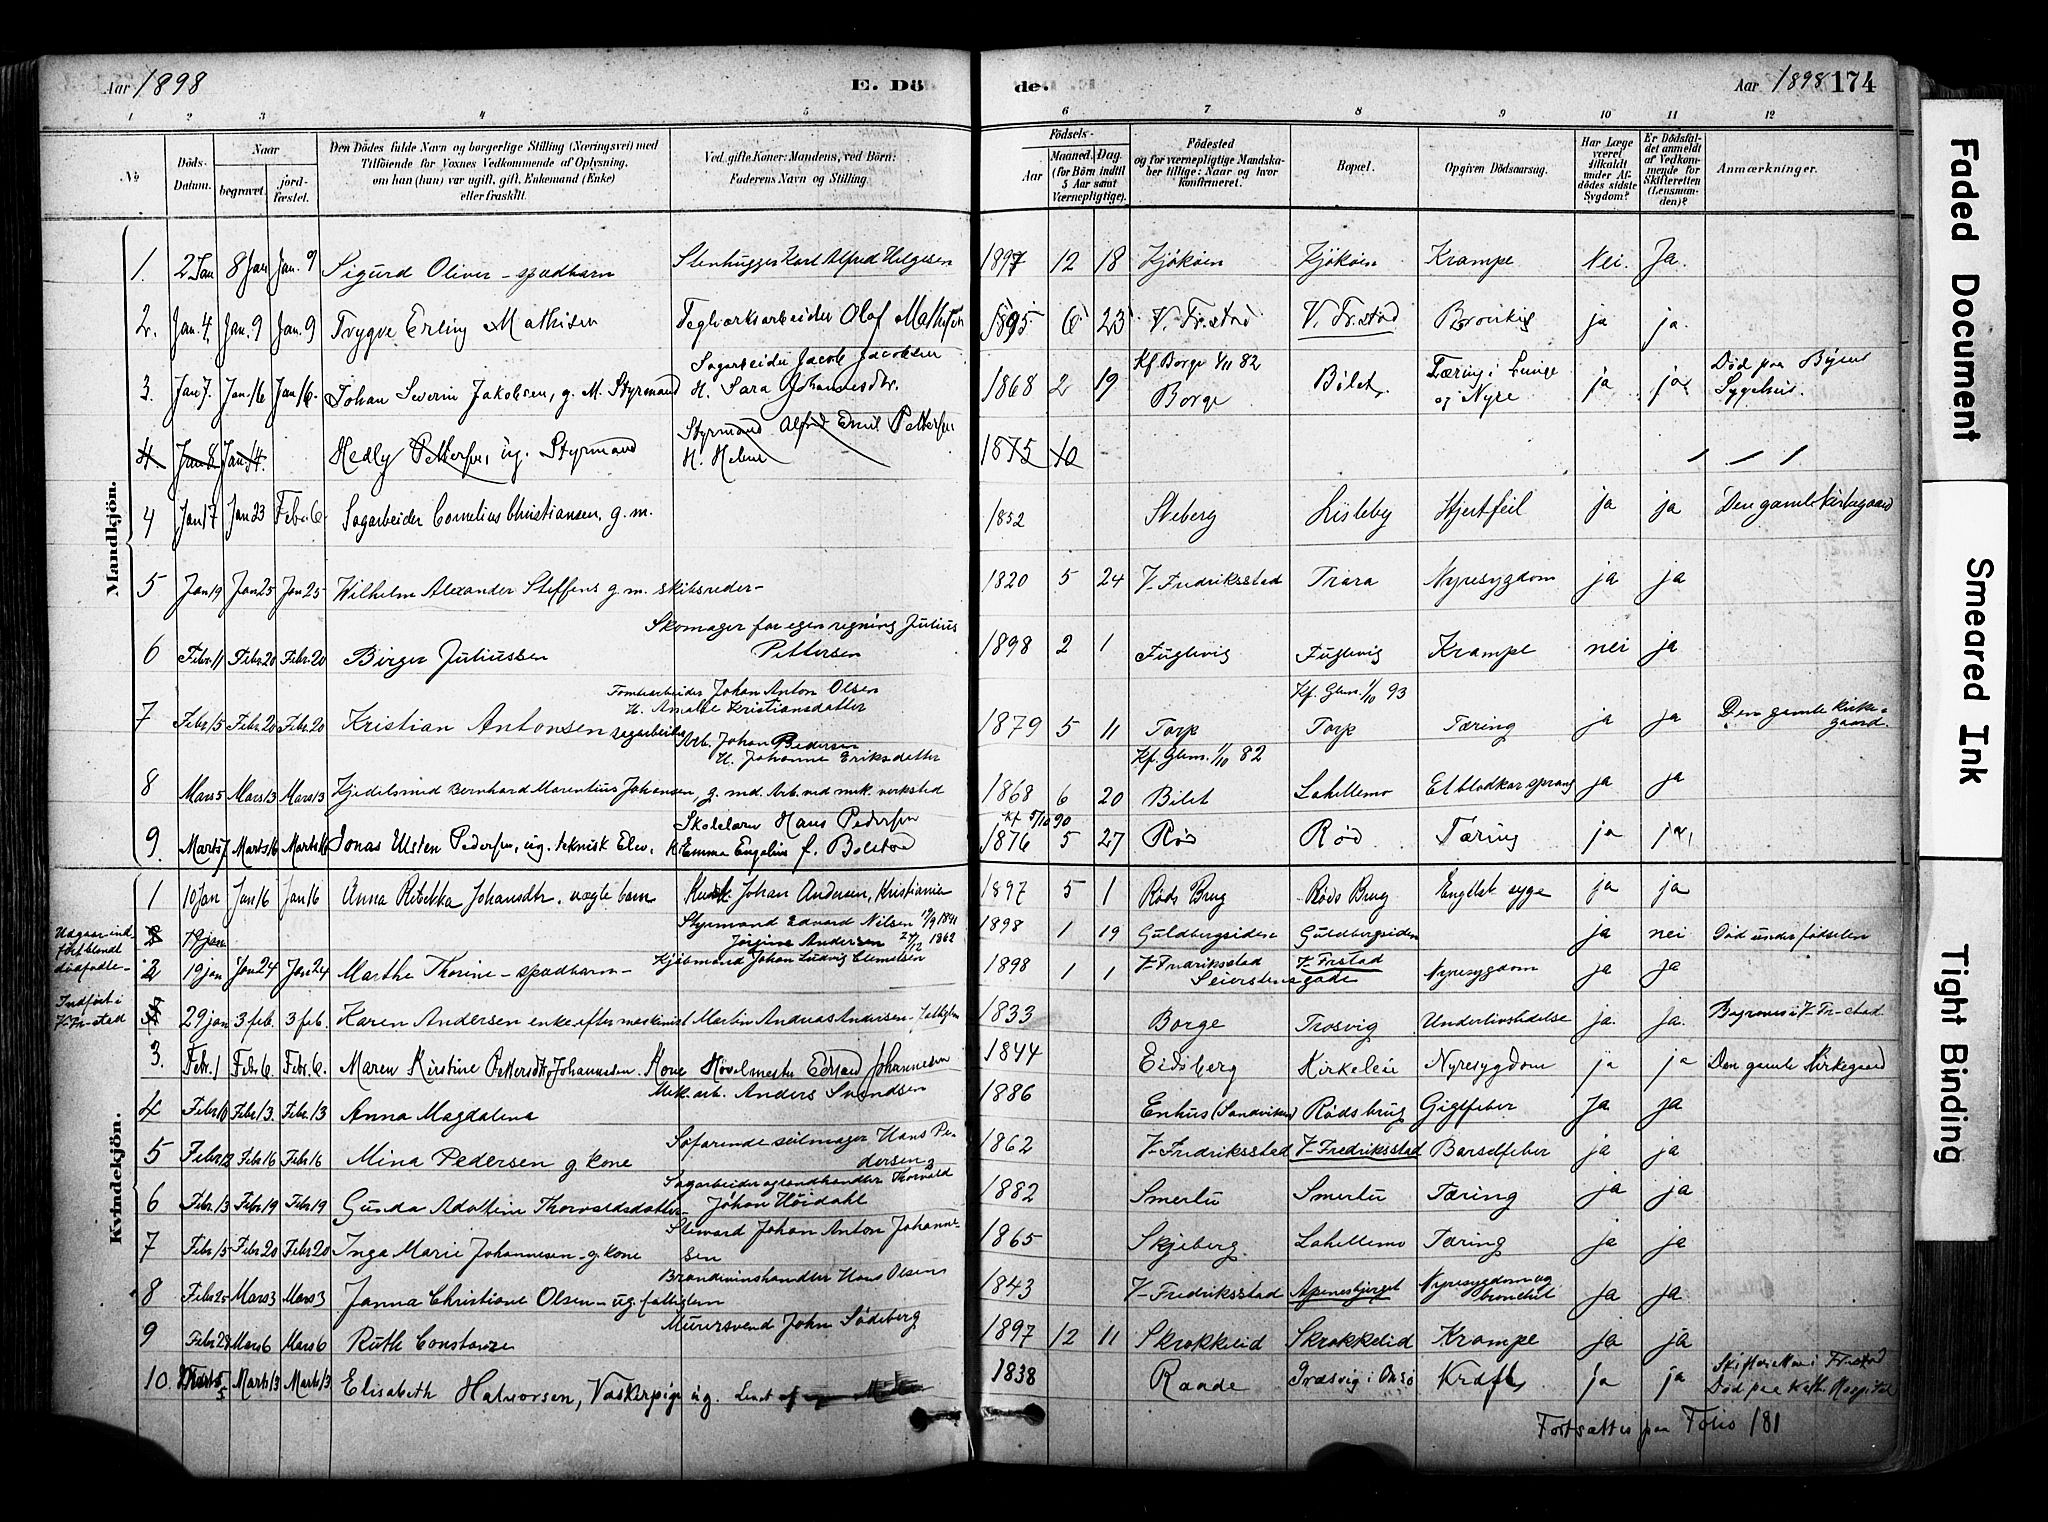 Aar 1898
E. Dö
de.
Aar 1898 174
1 2 3 4 5 6 7 8 9 10 11 12
No
Döds-Datum.
Naar
begravet.
jord-fæstet.
Den Dödes fulde Navn og borgerlige Stilling (Næringsvei) med
Tilföiende for Voxnes Vedkommende af Oplysning,
om han (hun) var ugift, gift, Enkemand (Enke)
eller fraskilt.
Ved gifte Koner: Mandens, ved Börn:
Faderens Navn og Stilling.
Födsels-
Aar
Maaned. Dag.
(for Börn indtil
5 Aar samt
Værnepligtige).
Födested
og for værnepligtige Mandska-
ber tillige: Naar og hvor
konfirmeret.
Bopæl.
Opgiven Dödsaarsag.
Har Læge
været
tilkaldt
under Af-
dödes sidste
Sygdom?
Er Dödsfal-
det anmeldt
af Vedkom-
mende for
Skifteretten
(Lensman-
den)?
Anmærkninger.
Mandkjön.
1. 2 Jan 8 Jan Jan. 9 Sigurd Oliver - spædbarn Stenhugger Karl Alfred Helgesen 1897 12 18 Kjøkøen Kjøkøen Krampe Nei. Ja.
2. Jan. 4, Jan. 9 Jan. 9 Trygve Erling Mathisen Teglværksarbeider Olaf Mathisen 1895 6 23 V. Fr.stad V. Fr.stad Bronkit ja ja.
Sagarbeider Jacob Jacobsen Kf. Borge 1/11 82
3. Jan 7. Jan. 16 Jan 16. Johan Severin Jakobsen, g. M. Styrmand H. Sara Johannesdtr. 1868 2 19 Borge Tæring i Lunge og Nyre ja ja Død paa Byens Sygehus.
4. Jan 8 Jan. 14. Hedly Pettersen, ug. Styrmand Styrmand Alfred Emil Pettersen H. Helene 1875 10
4 Jan 17 Jan 23 Febr. 6. Sagarbeider Cornelius Christiansen, g. m. 1852 Lisleby Hjertfeil ja ja Den gamle kirkegaard
5 Jan 19 Jan 25 Jan 25 Wilhelm Alexander Steffens g. m. skibsreder- 1820 5 24 V. Fredriksstad Trara Nyresygdom ja ja
6 Febr. 11 Febr. 20 Febr. 20 Birger Juliussen Skomager for egen regning Julius Pettersen 1898 2 1 Fuglevig Fuglevig Krampe nei ja
7 Febr. 15 Febr. 20 Febr. 20 Kristian Antonsen sagarbeider Tomtearbeider Johan Anton Olsen
H. Amalie Kristiansdatter 1879 5 11 Torp Kf. Glem. 1/10 93 Torp Tæring ja ja Den gamle kirke-
gaard.
Arb. Johan Pedersen
H. Johanne Eriksdatter Kf. Glem. 1/10 82
8 Mars 5 Mars 13 Mars 13 Kjedelsmed Bernhard Marentius Johansen, g. md. Arb. ved mek. verksted 1868 6 20 Lahellemo Et blodkar sprang ja ja
9. Marts 7 Marts 16 Marts 16 Jonas Ulsten Pedersen, ug. teknisk Elev. Skolelærer Hans Pedersen
Emma Engeline f. Bolstad Kf 5/10 90 1876 5 27 Rød Rød Tæring ja ja,
Kvindekjön.
1 10 Jan Jan 16 Jan 16 Anna Rebekka Johansdtr. uægte barn Kusk Johan Andersen, Kristiania 1897 5 1 Røds Brug Røds Brug Engelsk syge ja ja
Udgaar ind-
ført blandt
dødfødte-
2 19 jan Styrmand Edvard Nilsen 17/9 1841
Jørgine Andersen 24/12 1862 1898 1 19 Guldbergsiden Guldbergsiden ja nei Død under fødselen
2 19 jan Jan 24 Jan 24 Marthe Thorine - spædbarn - Kjøbmand Johan Ludvig Clemetsen 1898 1 1 V- Fredriksstad V- Frstad
Seierstensgade Nyresygdom ja ja
Indført i
V-Fr-stad
29 jan 3 feb. 3 feb. Karen Andersen enke efter maskinist Martin Andreas Andersen 1833 Borge Trosvig Underlivslidelse ja. ja. Begraves i V-Fr-stad
3. Febr. 1 Febr 6. Febr. 6. Maren Kirstine Pettersdtr. Johannesen. Kone Høvelmester Edvard Johannesen 1844 Eidsberg Kirkeleii Nyresygdom ja ja Den gamle Kirkegaard
4 Febr. 10 Febr. 13. Febr. 13 Anna Magdalena Mek. arb. Anders Svendsen 1886 Enhus (Sandviken) Røds brug Gigtfeber Ja ja
5 Febr. 12 Febr. 16 Febr. 16 Mina Pedersen g kone Søfarende seilmager Hans Pe-
dersen 1862 V- Fredriksstad V- Fredriksstad Barselfeber ja ja
6 Febr. 13 Febr. 19 Febr. 19 Gunda Adolfine Thorvaldsdatter- Sagarbeider og landhandler Thorvald
Johan Høidahl 1882 Smertu Smertu Tæring ja ja
7 Febr. 15 Febr. 20 Febr. 20 Inga Marie Johannesen - g. kone Steward Johan Anton Johanne-
sen 1865 Skjeberg. Lahellemo Tæring ja ja
8 Febr 25 Mars 3 Mars 3 Janna Christiane Olsen - ug fattiglem Brændevinshandler Hans Olsen 1843 V- Fredriksstad Apenesbjerget Nyresygdom og
bronchit ja ja
9 Febr. 28 Mars 6 Mars 6 Ruth Constanze Murersvend John Søderberg 1897 12 11 Skrokkelid Skrokkelid Krampe ja ja
10. Marts 5 Marts 13 Marts 13 Elisabeth Halvorsen, Vaskerpige ug. 1838 Raade Græsvig i Onsø Kræft, ja ja Skifteretten i Fr.stad
Død paa Kath. Hospital
Fortsættes paa Folio 181
Faded Document
Smeared Ink
Tight Binding